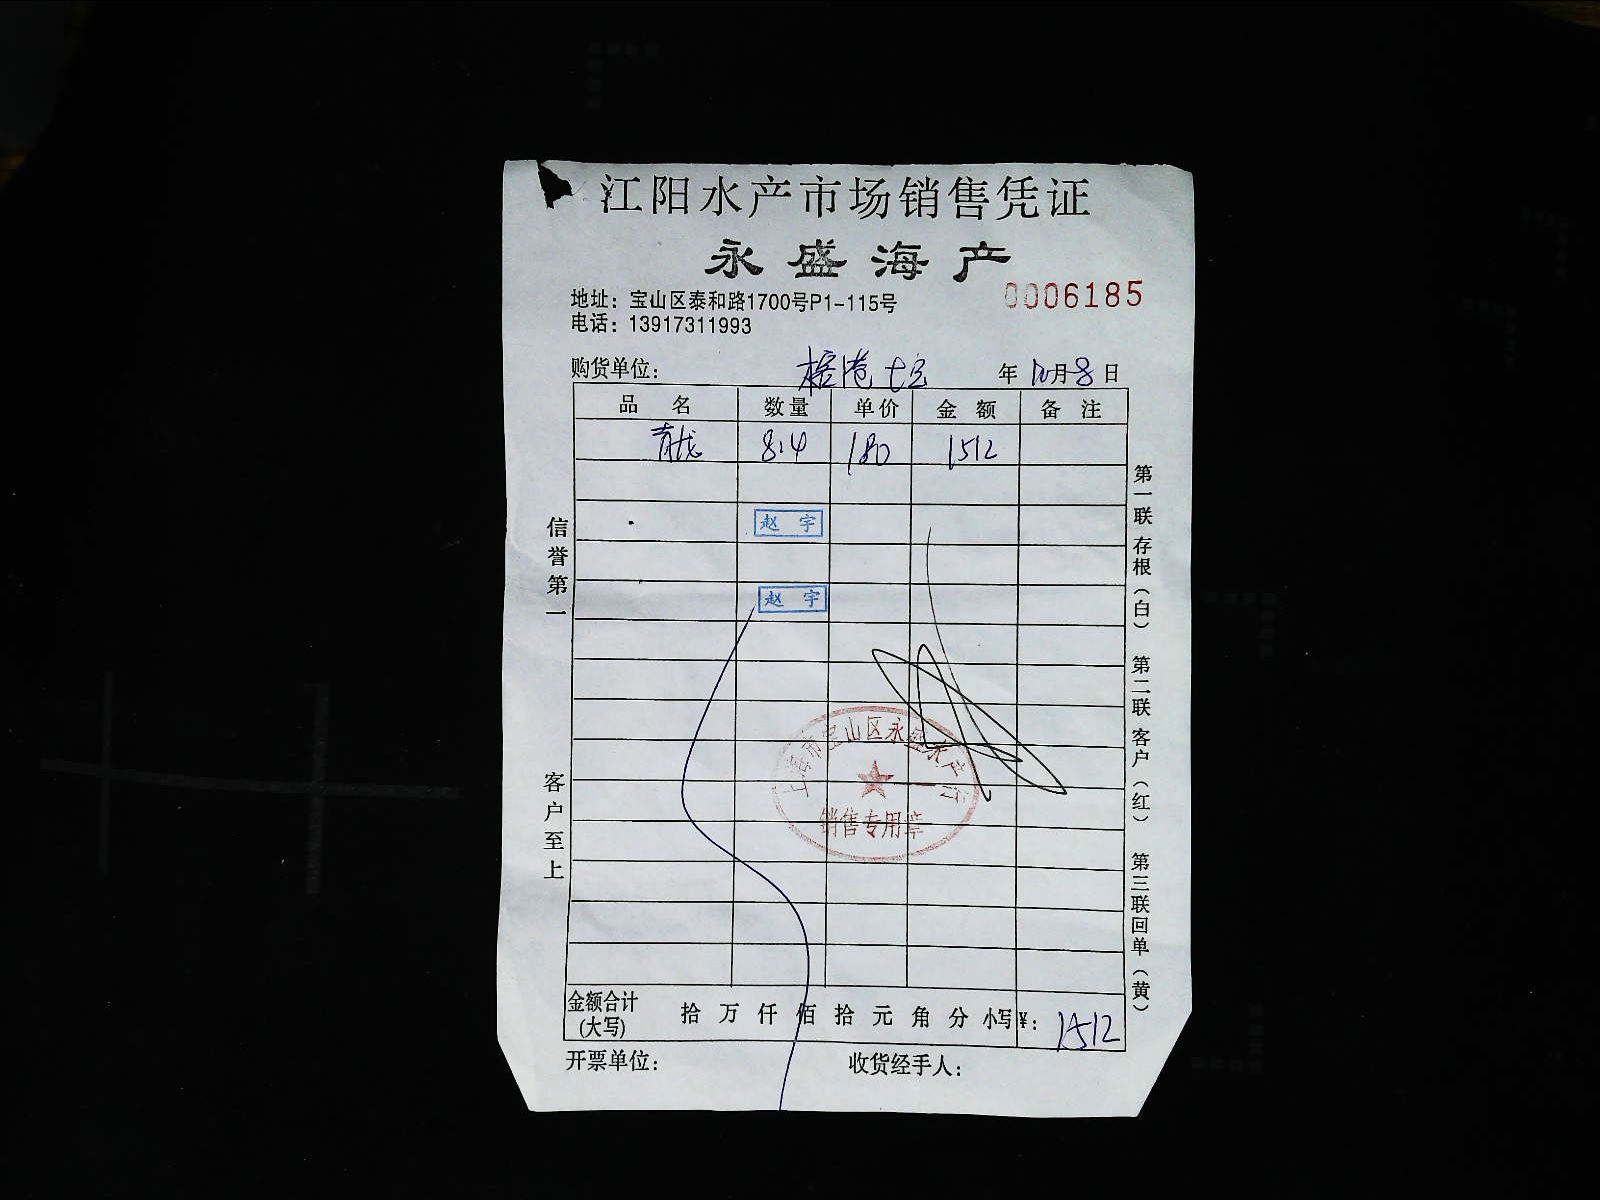 江阳水产市场销售凭证
永盛海产
地址：宝山区泰和路1700号P1-115号
0006185
电话：13917311993
购货单位： 年 10月8日
品 名 数量 单价 金 额 备 注
青龙 8.4 180 1512
赵 宇
赵 宇
上海市宝山区永盛水产行
销售专用章
信誉第一
客户至上
第一联 存根（白） 第二联 客户（红） 第三联回单（黄）
金额合计 (大写) 拾 万 仟 佰 拾 元 角 分 小写¥：1512
开票单位： 收货经手人：